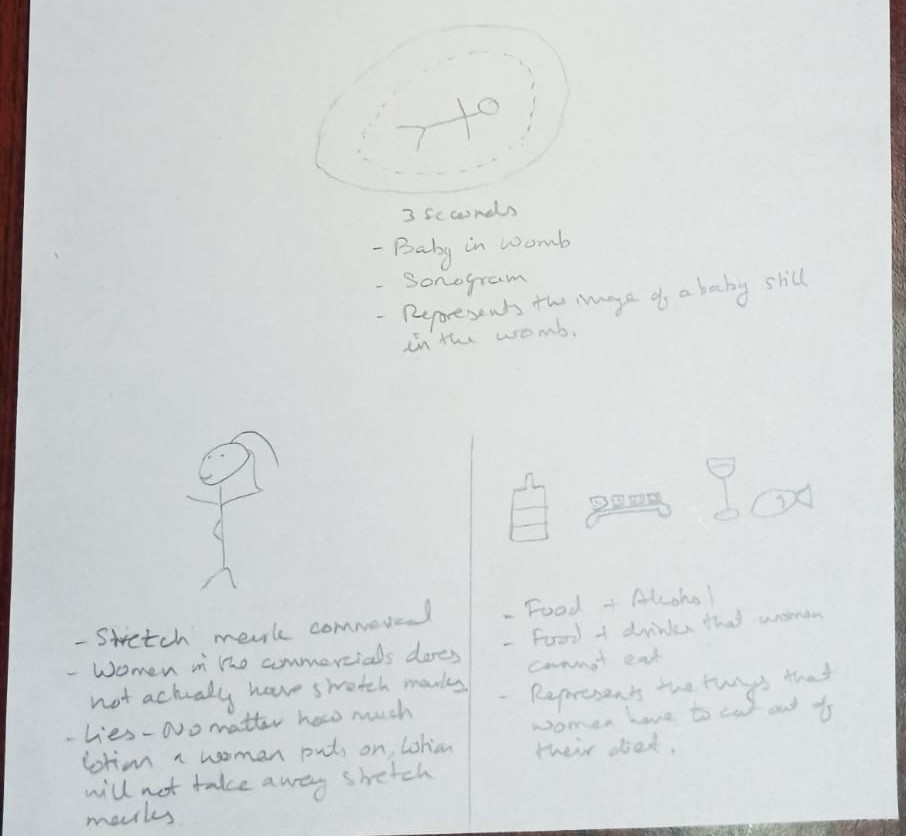 3 Seconds
- Baby in womb
- Sonogram
- Represents the image of a baby still
in the womb.
- Stretch mark commercial
- Women in the commercials does
not actually have stretch marks
- Lies - No matter how much
lotion a woman puts on, lotion
will not take away stretch
marks
- Food + Alcohol
- Food + drinks that women
cannot eat
- Represents the things that
women have to cut out of
their diet.